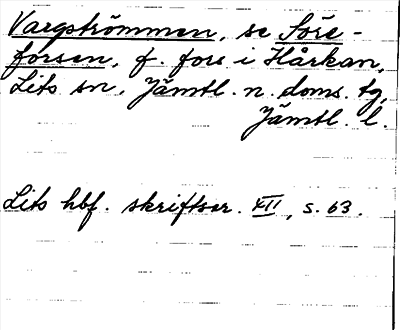 Vargströmmen, se Sore-
forsen, f. fors i Hårkan,
Lits sn, Jämtl. n. doms. tg,
Jämtl. l.
Lits hbf. skriftser. XII, s. 63.